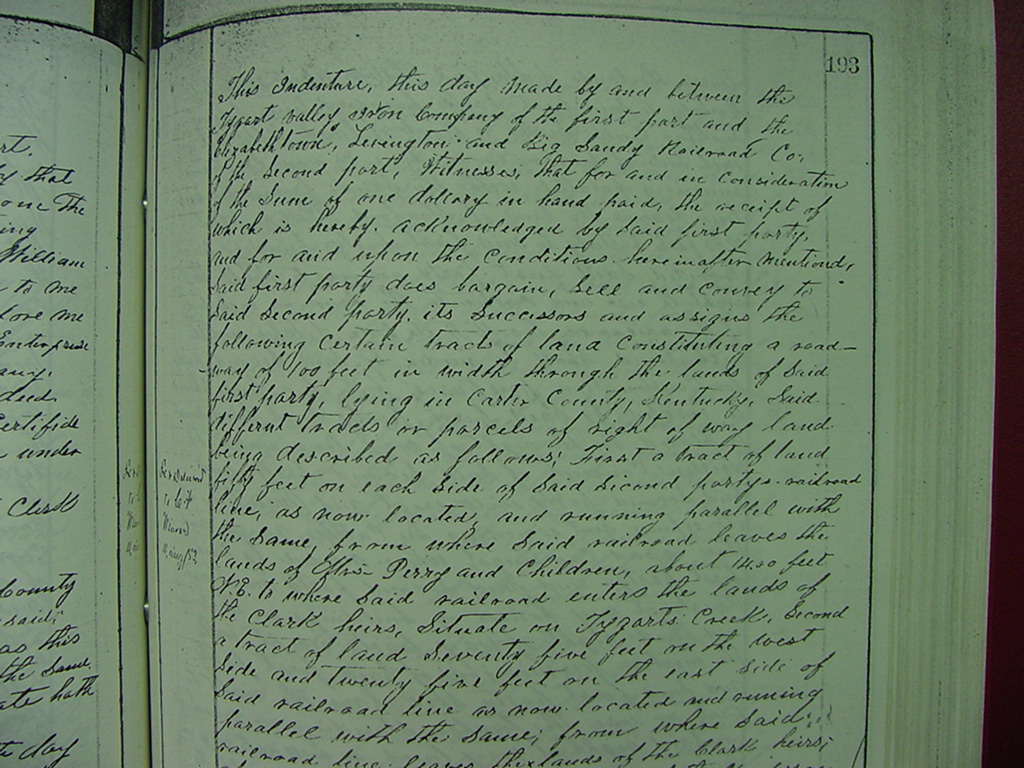 rt.
that
one the
ing
William
to me
fore me
Enterprise
any.
deed
Certifide
under
Clerk
County
said;
as this
the same,
ate hath
day
193
This Indenture, this day made by and between the
Tygart Valley Iron Company of the first part and the
Elizabethtown, Lexington and Big Sandy Railroad Co.
of the second part, Witnesses, That for and in consideration
of the sum of one dollary in hand paid, the receipt of
which is hereby acknowledged by said first party,
and for and upon the conditions hereinafter mentiond,
said first party does bargain, sell and convey to
said second party, its successors and assigns the
following certain tracts of land constituting a road-
way of 100 feet in width through the lands of said
first party, lying in Carter County, Kentucky, said
differnt tracts or parcels of right of way land
being described as follows; First a tract of land
fifty feet on each side of said second partys railroad
line, as now located, and running parallel with
the same, from where said railroad leaves the
lands of Mrs Perry and Children, about feet
N.E. to where said railroad enters the lands of
the Clark heirs, Situate on Tygarts Creek, Second
a tract of land seventy five feet on the west
side and twenty five feet on the east side of
said railroad line as now located and runing
parallel with the same; from where said
railroad line leaves the lands of the Clark heirs;